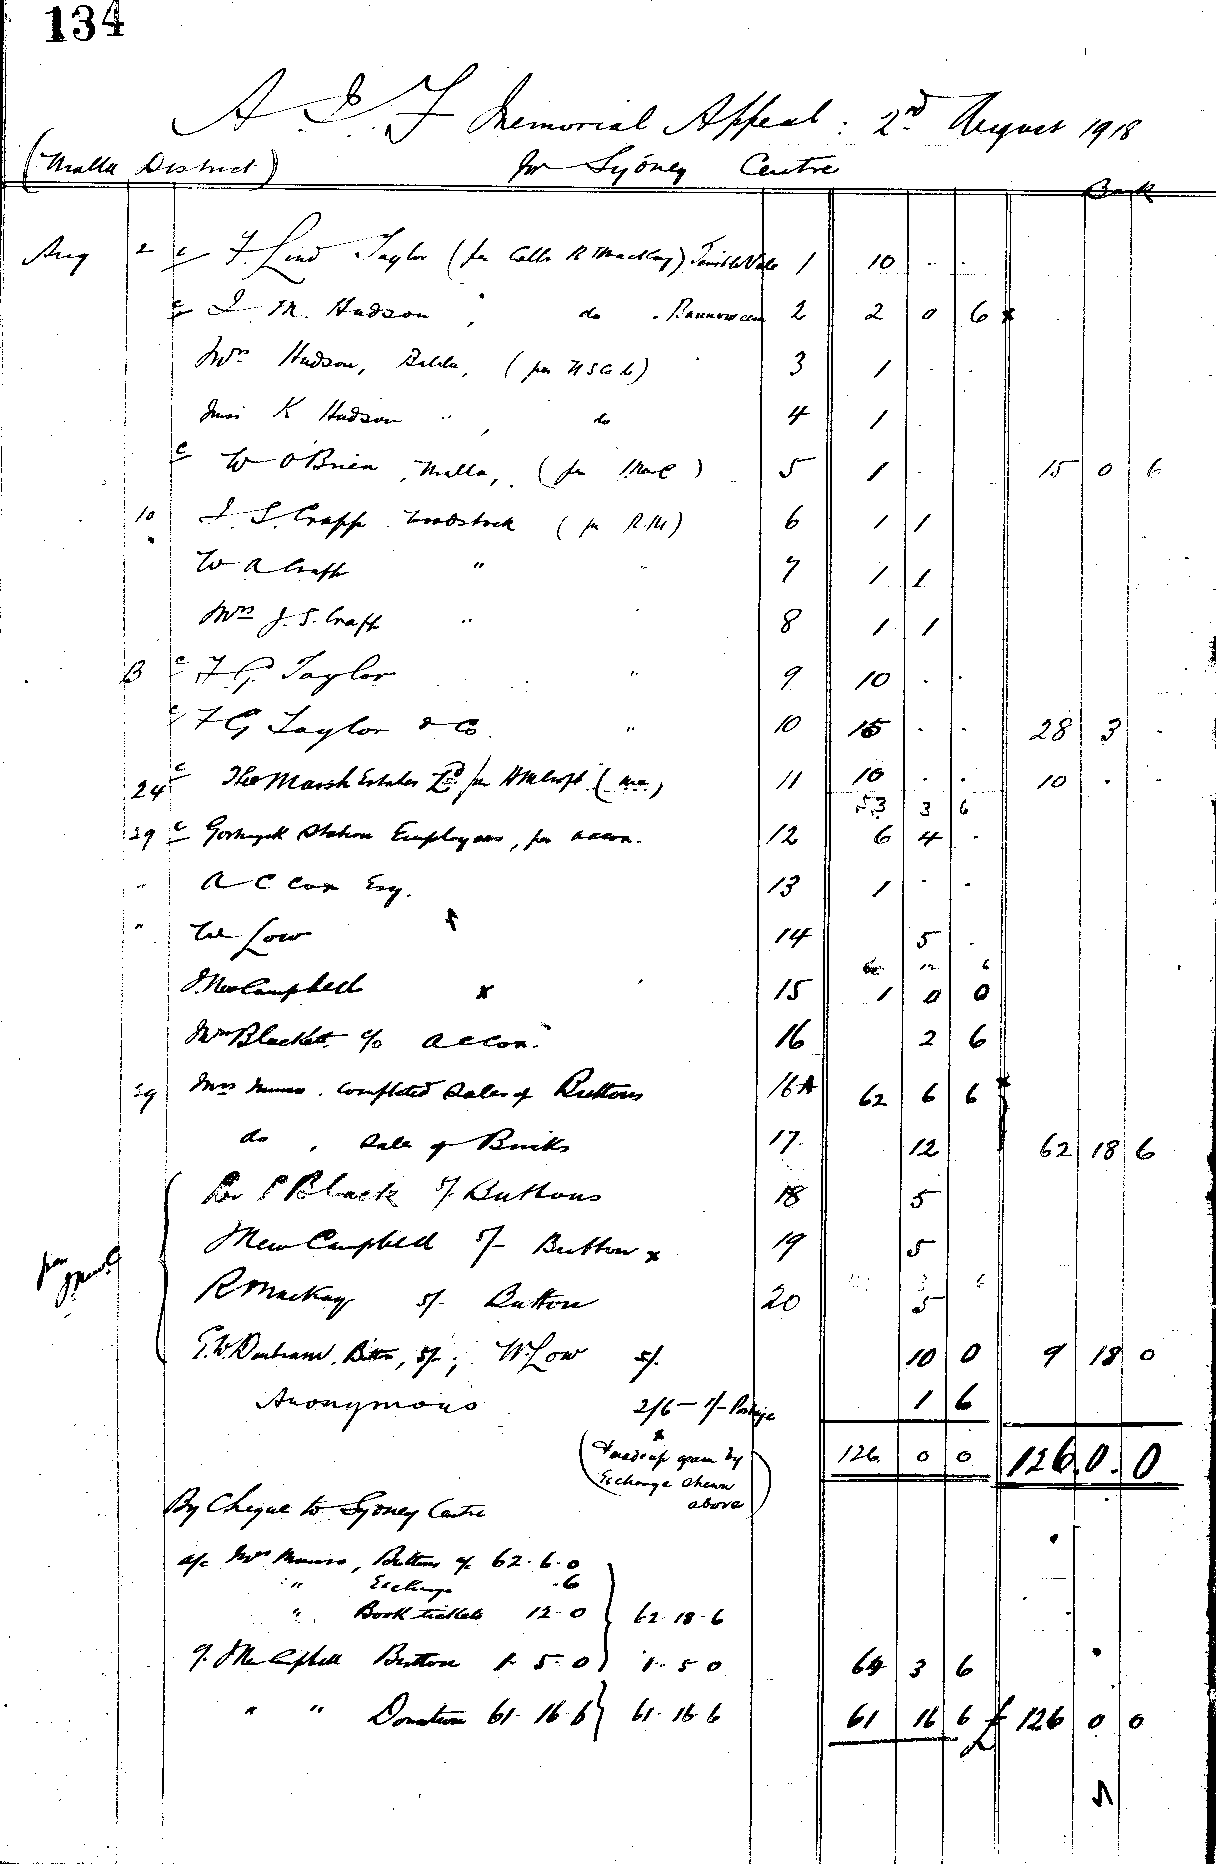 134
A I F Memorial Appeal : 2nd August 1918
(Walla District) for Sydney Centre
Bank
Aug 2 c F. Lind Taylor (per Colls R Mackay) Terrible Vale 1 10 . .
c I. M. Hudson , do . 2 2 0 6 x
Mrs Hudson, , (per ) 3 1 . .
Miss K Hudson " , do 4 1 .
c W O'Brien , Walla, (per ) 5 1 . 15 0 6
10 J S. Crapp Woodstock (per R.M) 6 1 1
W A Crapp " " 7 1 1
Mrs J. S. Crapp " 8 1 1
13 c F G Taylor " 9 10 . .
c F G Taylor & Co. " 10 15 . . 28 3 .
24 c The Marsh Estates Ld per ( ) 11 10 . . 10 . .
53 3 6
29 c Gostwyck Station Employees, per 12 6 4 .
" A C Cox Esq. 13 1 . .
" W Low 14 5 .
12 6
J. McCampbell x 15 1 0 0
Mrs Blackett c/o 16 2 6
29 Mrs Munro . completed Sales of Buttons 16A 62 6 6 x
do , Sale of Books 17. 12 62 18 6
per P Black 5/ Buttons 18 5
Campbell 5/- Button x 19 5
R Mackay 5/. Button 20 5
G. W. , , 5/-; W. Low 5/. 10 0 9 18 0
Anonymous 2/6 - 1/- Postage 1 6
x
( made up gain by
Exchange shewn
above)
126. 0 0 126. 0. 0
By Cheque to Sydney Centre
a/c Mrs Munro, Buttons 62. 6. 0
" Exchange . 6
" Book tickets 12. 0 62. 18. 6
Button 1. 5. 0 1. 5 0 64 3 6
" " Donation 61. 16. 6 61. 16. 6 61 16 6 £ 126 0 0